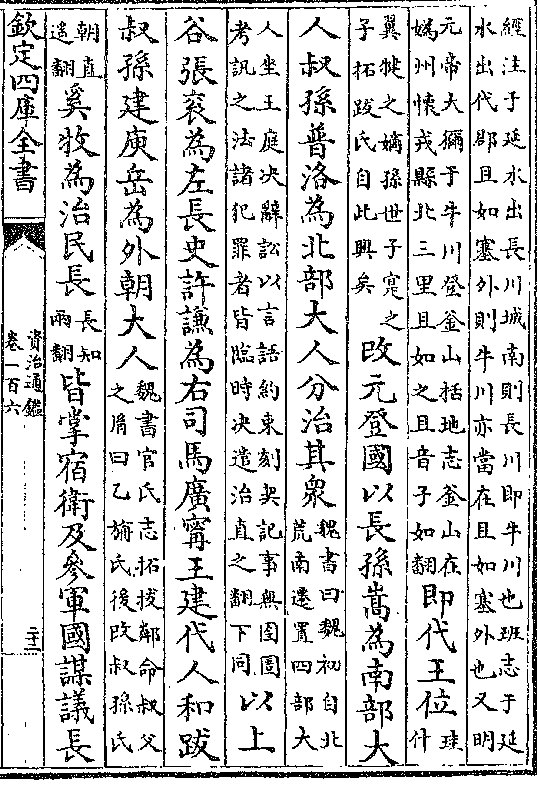 經注于延水出長川城南則長川即牛川也班志于延
水出代郡且如塞外則牛川亦當在且如塞外也又明
元帝大獮于牛川登釜山括地志釜山在
媯州懷戎縣北三里且如之且音子如翻
即代王位
珪
什
翼犍之嫡孫世子寔之
子拓跋氏自此興矣
改元登國以長孫嵩為南部大
人叔孫普洛為北部大人分治其衆
魏書曰魏初自北
荒南遷置四部大
人坐王庭决辭訟以言語約束刻契記事無囹圄
考訊之法諸犯罪者皆臨時决遣治直之翻下同
以上
谷張衮為左長史許謙為右司馬廣甯王建代人和跋
叔孫建庾岳為外朝大人
魏書官氏志拓拔鄰命叔父
之胤曰乙旃氏後改叔孫氏
朝直
遥翻
奚牧為治民長
長知
兩翻
皆掌宿衛及參軍國謀議長
欽定四庫全書
資治通鑑
卷一百六
二十三